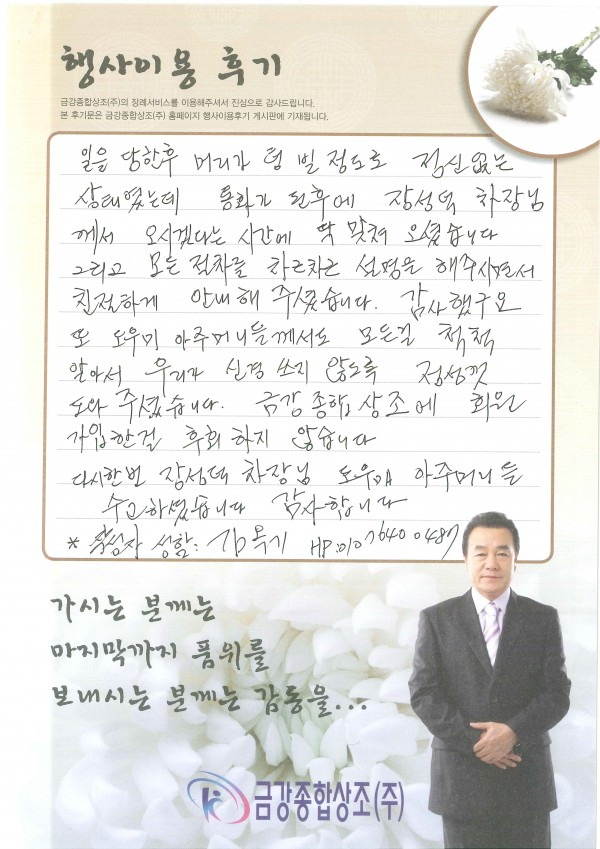 행사이용 후기
금강종합상조(주)의 장례서비스를 이용해주셔서 진심으로 감사드립니다.
본 후기문은 금강종합상조(주) 홈페이지 행사이용후기 게시판에 기재됩니다.
일을 당한후 머리가 텅 빌 정도로 정신없는
상태였는데 통화가 된후에 장성덕 차장님
께서 오시겠다는 시간에 딱 맞쳐 오셨습니다
그리고 모든 절차를 차근차근 설명을 해주시면서
친절하게 안내해 주셨습니다. 감사했구요
또 도우미 아주머니들께서도 모든걸 척척
알아서 우리가 신경 쓰지 않도록 정성껏
도와 주셨습니다. 금강종합상조에 회원
가입한걸 후회하지 않습니다
다시한번 장성덕 차장님 도우미 아주머니들
수고하셨습니다 감사합니다
* 작성자 성함: 김옥기 HP:010 7640 0487
가시는 분께는
마지막까지 품위를
보내시는 분께는 감동을...
금강종합상조(주)